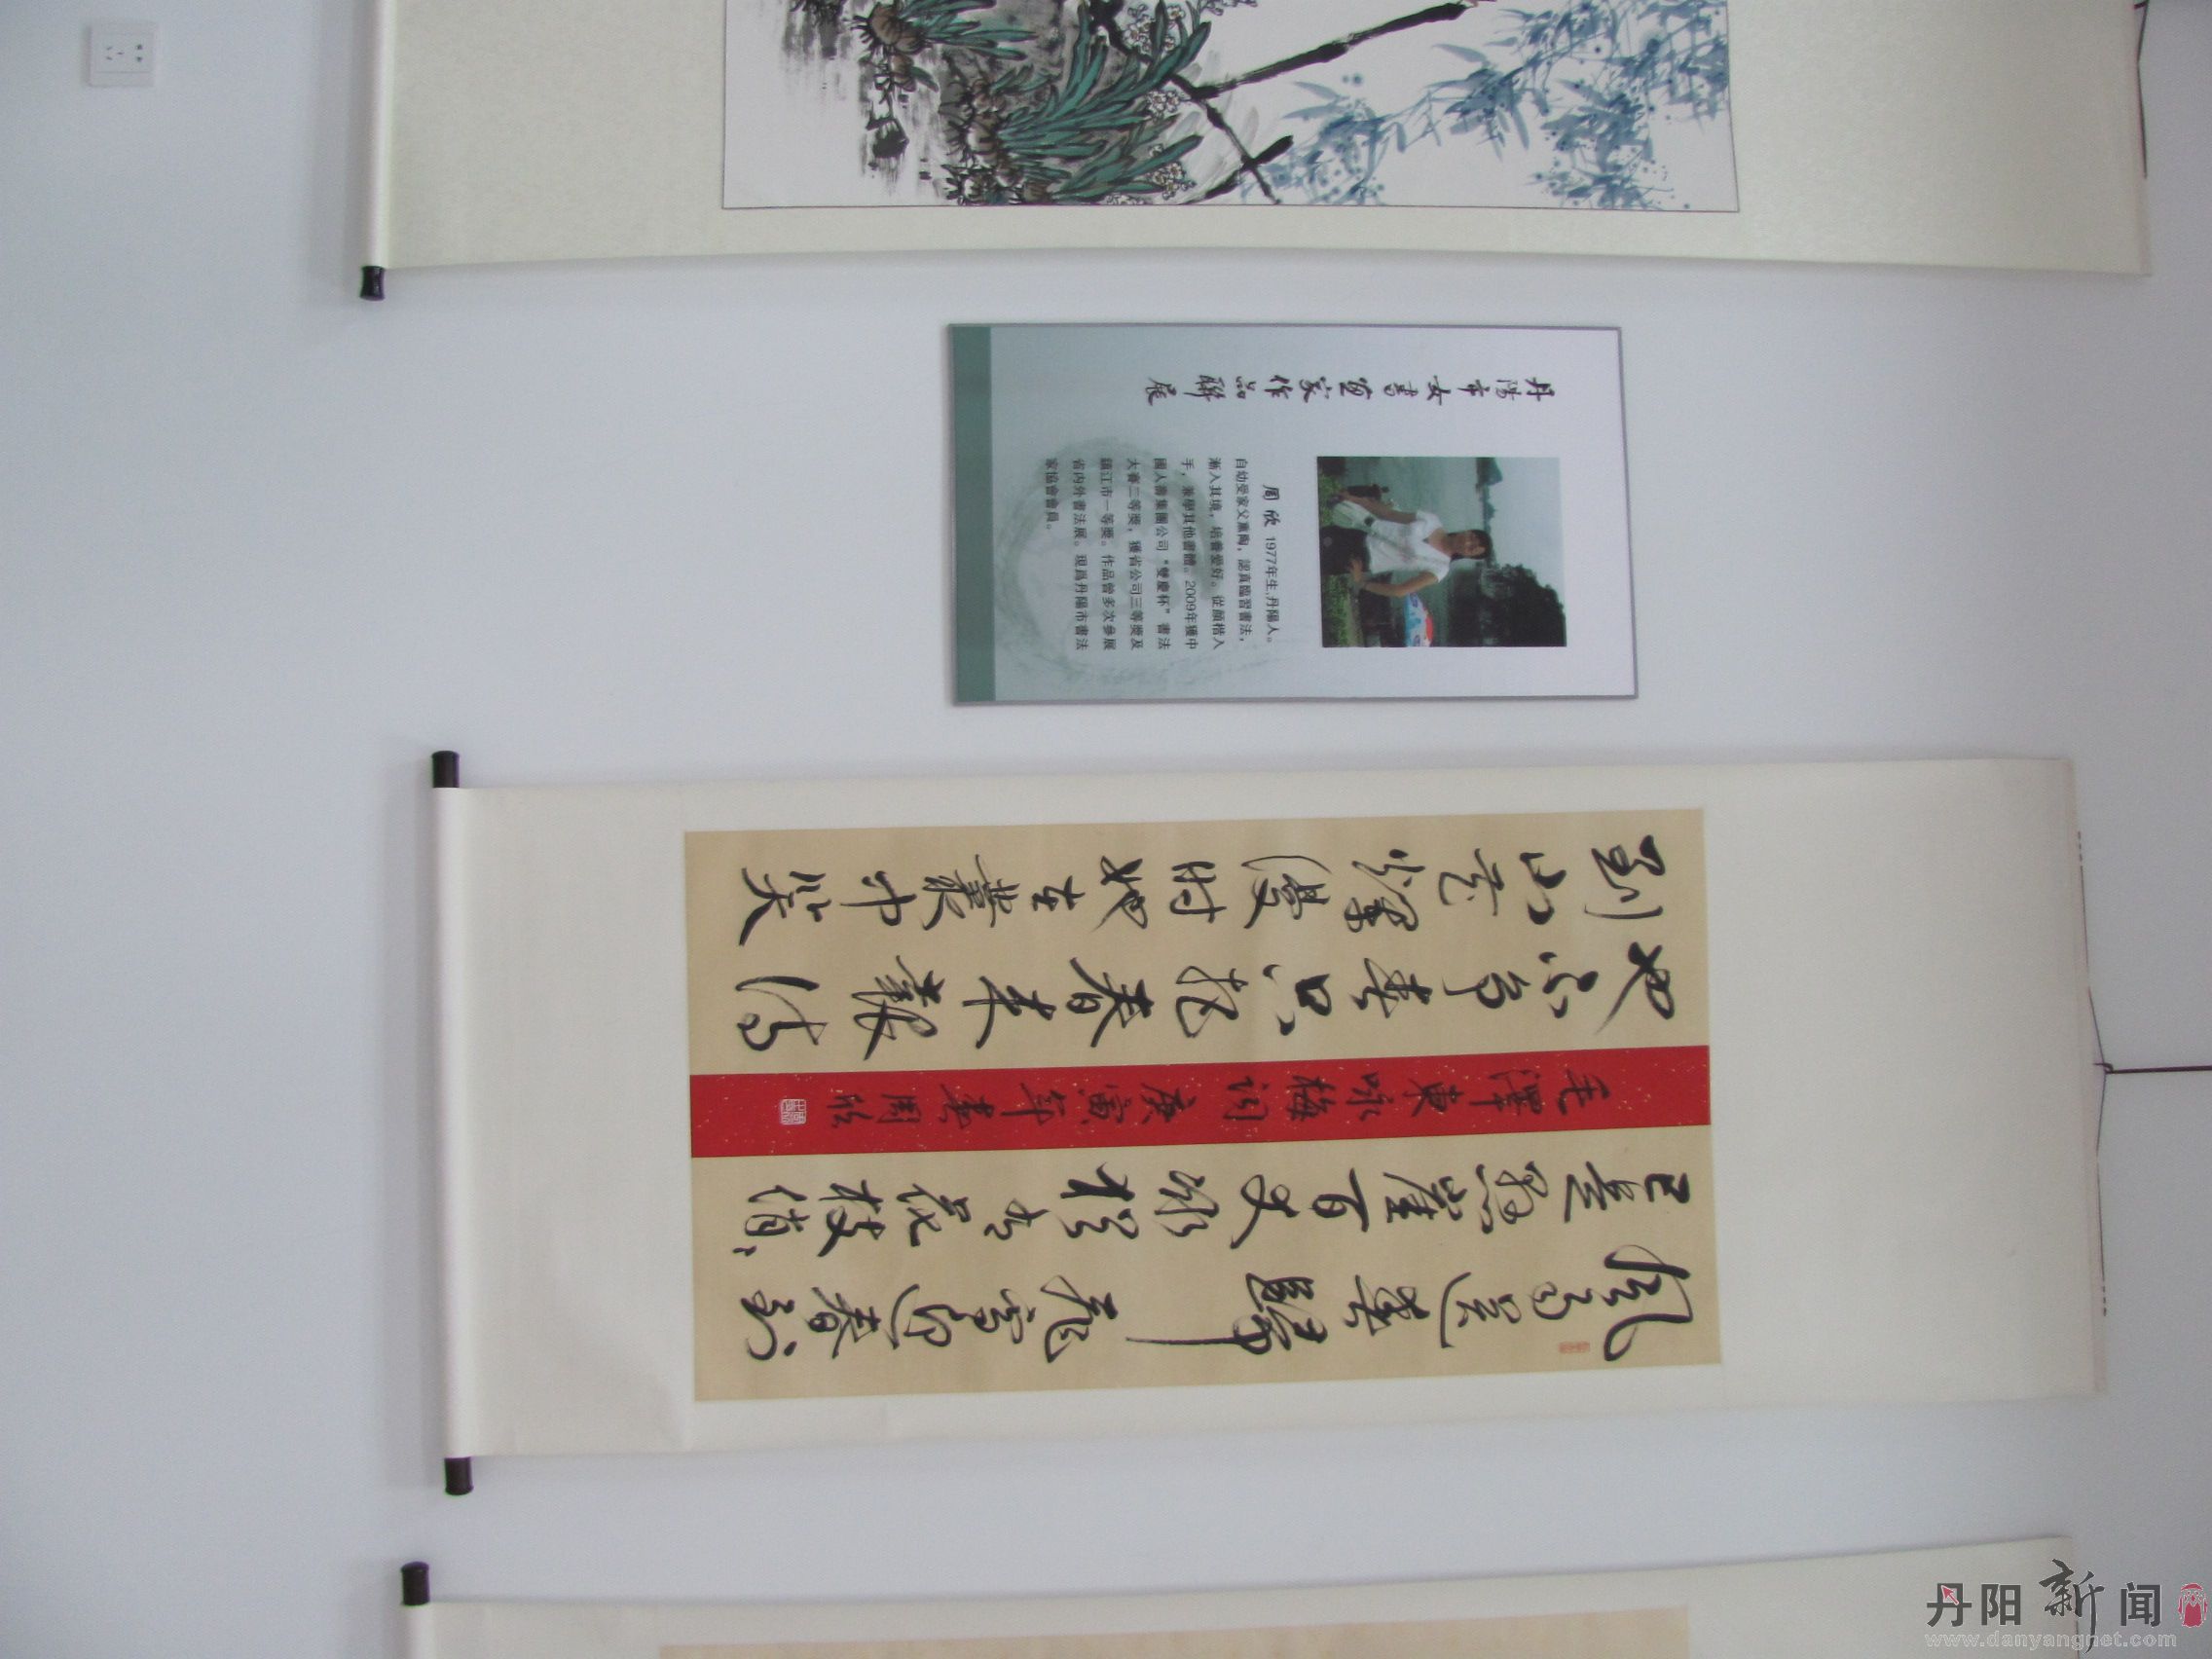 丹陽市女書画家作品聯展
周欣 1977年生,丹陽人。
自幼受家父熏陶，認真臨習書法，
漸入其境，培養愛好。從顔楷入
手，兼學其他書體。2009年獲中
國人壽集團公司“雙慶杯”書法
大賽二等獎，獲省公司三等獎及
鎮江市一等獎。作品曾多次參展
省内外書法展。現爲丹陽市書法
家協會會員。
風雨送春歸飛雪迎春到
已是懸崖百丈冰猶有花枝俏、
毛澤東咏梅詞庚寅年書周欣
也不爭春只把春來報待
到山花爛漫時她在叢中笑
丹阳新闻
www.danyangnet.com